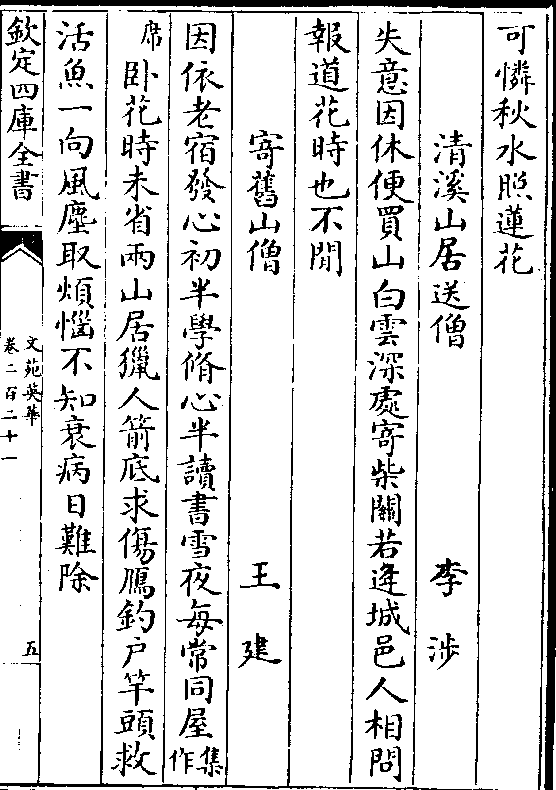 可憐秋水照蓮花
清溪山居送僧 李涉
失意因休便買山白雲深處寄柴關若逢城邑人相問
報道花時也不閒
寄舊山僧 王建
因依老宿發心初半學脩心半讀書雪夜每常同屋集作
席卧花時未省兩山居獵人箭底求傷鴈釣户竿頭救
活魚一向風塵取煩惱不知衰病日難除
欽定四庫全書 文苑英華 卷二百二十一 五